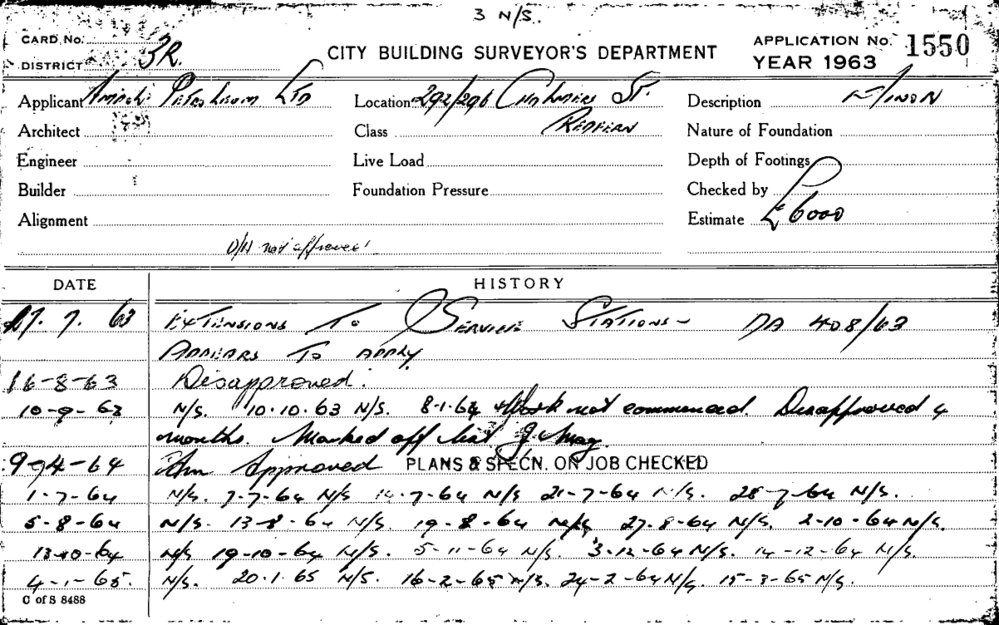 3 N/S.
CARD No.
DISTRICT 3R.
CITY BUILDING SURVEYOR'S DEPARTMENT
APPLICATION No. 1550
YEAR 1963
Applicant Petroleum Ltd
Location 292/296 Chalmers St.
Description
Architect
Class Redfern
Nature of Foundation
Engineer
Live Load
Depth of Footings
Builder
Foundation Pressure
Checked by
Alignment
Estimate £6000
not approved
DATE HISTORY
7. 63 Extensions To Service Stations - DA 408/63
Appears To Apply
16-8-63 Disapproved.
10-9-63 N/S. 10.10.63 N/S. 8-1-64 Work not commenced. Disapproved 4
months. Marked off list
9-4-64 Approved PLANS & SPECN. ON JOB CHECKED
1-7-64 N/S. 7-7-64 N/S 14-7-64 N/S 21-7-64 N/S. 28-7-64 N/S.
5-8-64 N/S. 13-8-64 N/S 19-8-64 N/S 27-8-64 N/S. 2-10-64 N/S.
13-10-64 N/S 19-10-64 N/S. 5-11-64 N/S. 3-12-64 N/S. 14-12-64 N/S.
4-1-65. N/S. 20.1.65 N/S. 16-2-65 N/S. 24-2-64 N/S. 15-3-65 N/S.
C of S 8488